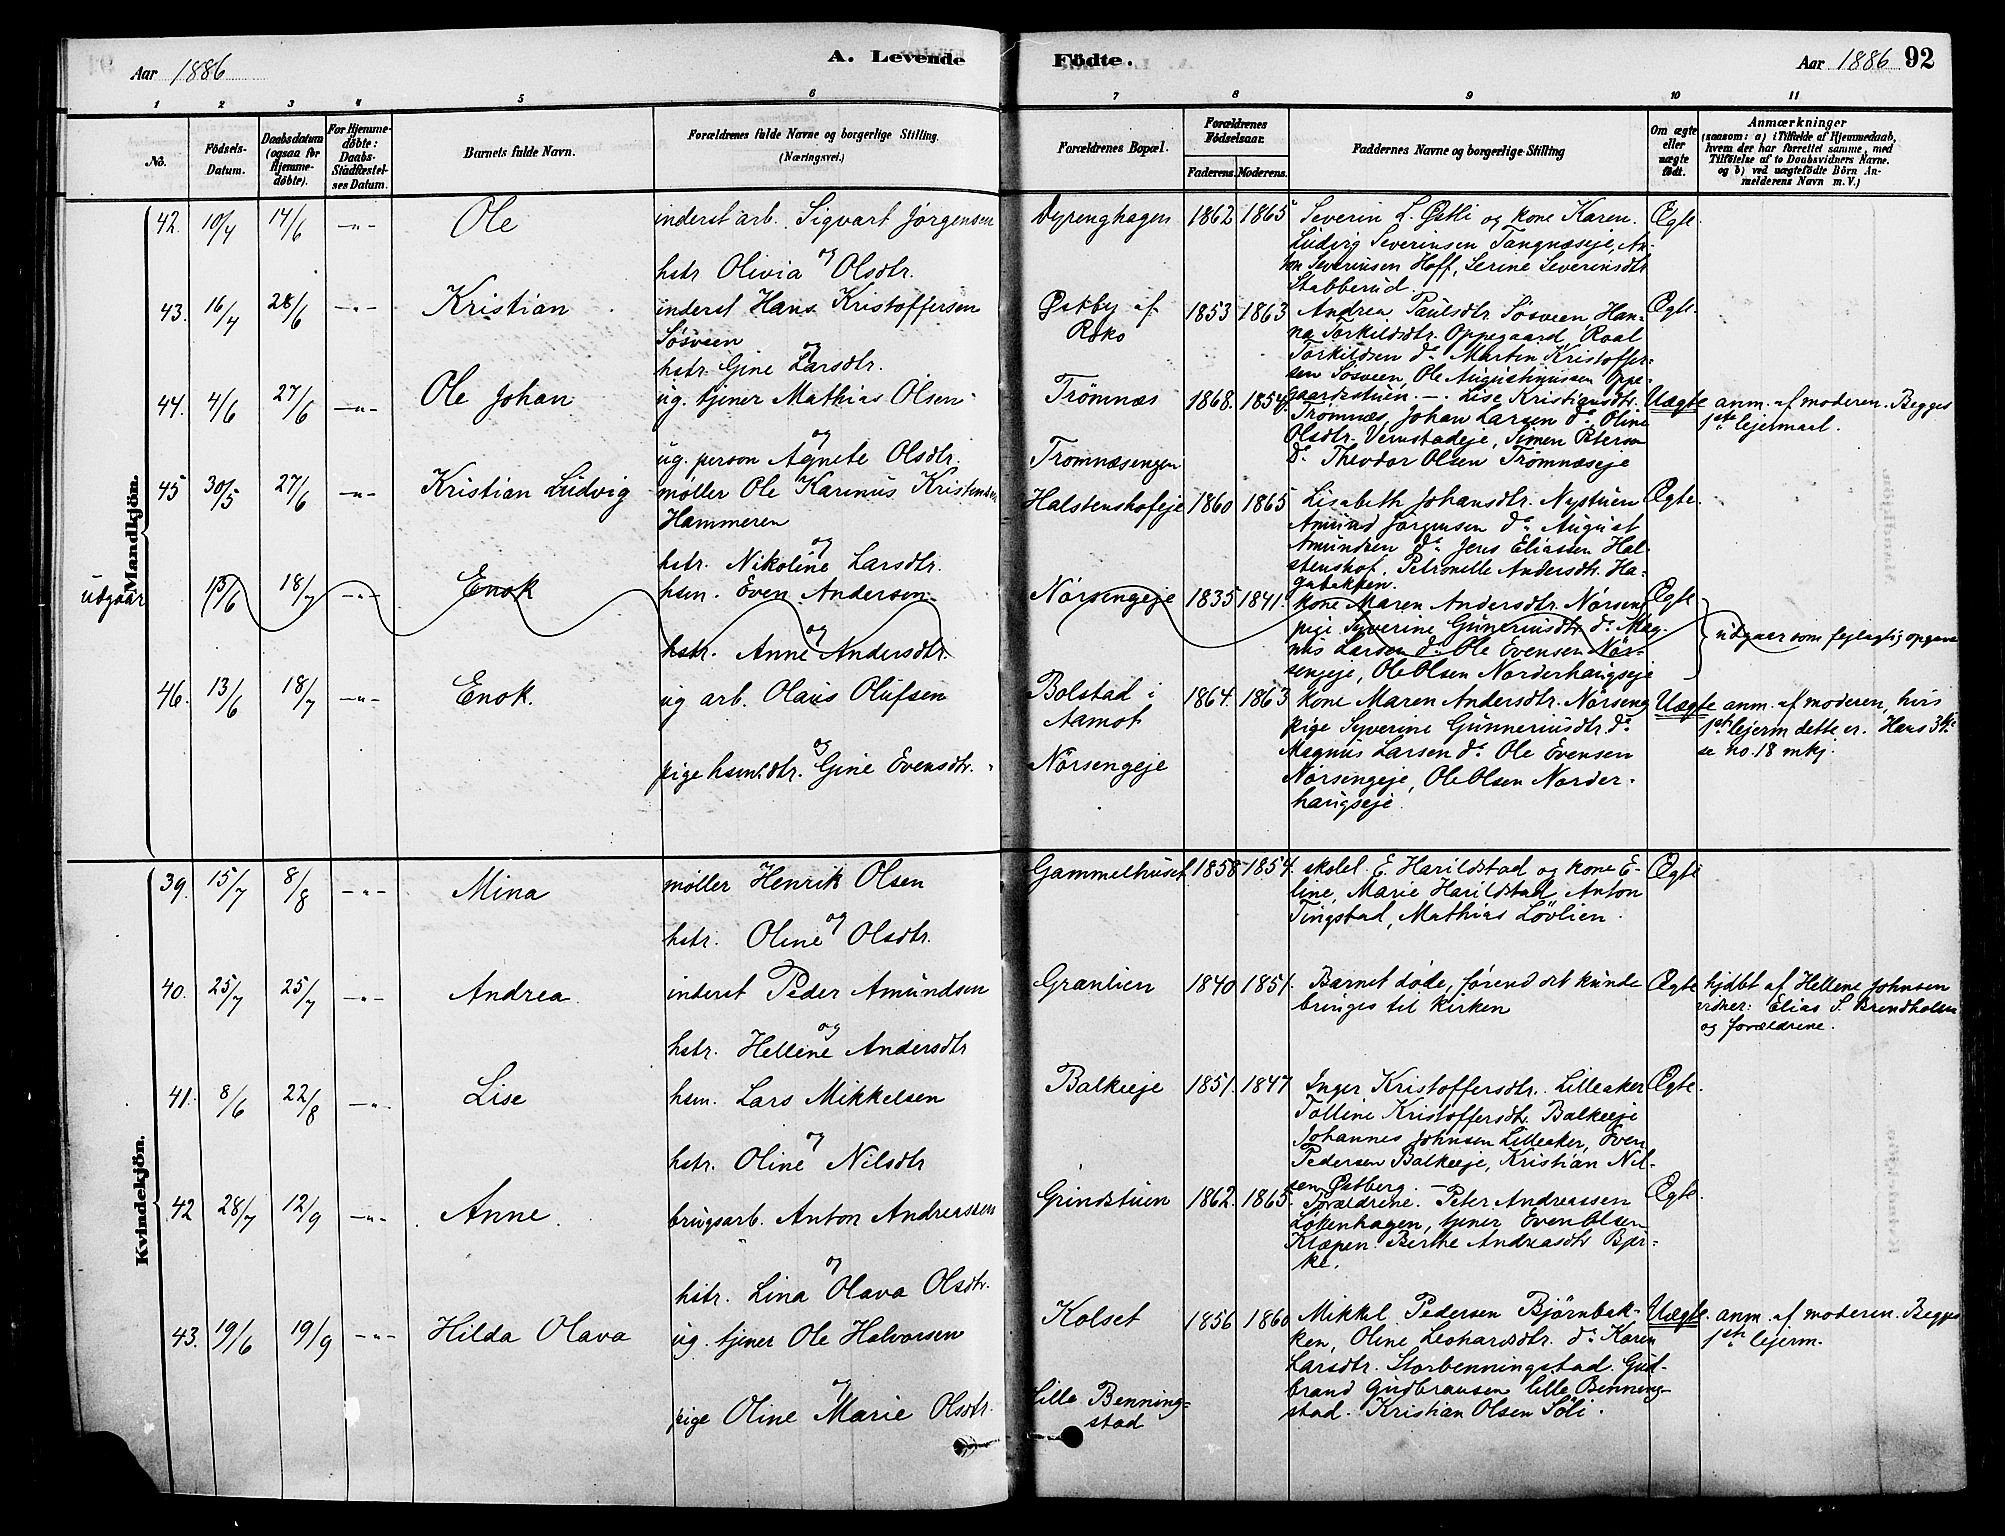 Aar 1886
A. Levende
Födte.
Aar 1886
92
1 2 3 4 5 6 7 8 9 10 11
No.
Födsels-Datum.
Daabsdatum (ogsaa for Hjemmedöbte).
For Hjemmedöbte: Daabs-Stadfæstelses Datum.
Barnets fulde Navn.
Forældrenes fulde Navne og borgerlige Stilling. (Næringsvei.)
Forældrenes Bopæl.
Forældrenes Födselsaar.
Faderens. Moderens.
Faddernes Navne og borgerlige Stilling
Om ægte eller uægte födt.
Anmærkninger
(saasom: a) i Tilfælde af Hjemmedaab, hvem der har forrettet samme, med Tilföielse af to Daabsvidners Navne. og b) ved uægtefödte Börn Anmelderens Navn m. V.)
Mandkjön.
42. 10/4 14/6 -"- Ole
inderst arb. Sigvart Jörgensen
og
hstr. Olivia Olsdtr.
Dyrenghagen 1862 1865
Severin L. Østli og kone Karen.
Ludvig Severinsen Tangnæseje, An-
ton Severinsen Hoff, Serine Severinsdtr
Stabberud.
Ægte
43. 16/4 28/6 -"- Kristian
inderst Hans Kristoffersen
Sösveen
og
hstr. Gine Larsdtr.
Østby af
Roko
1853 1863
Andrea Paulsdtr. Sösveen Han-
na Torkildsdtr. Oppegaard, Roal
Torkildsen do. Martin Kristoffer-
sen Sösveen, Ole Augustinussen Oppe-
gaardsstuen. -
Ægte.
44. 4/6 27/6 -"- Ole Johan
ug. tjener Mathias Olsen
og
ug. person Agnete Olsdtr.
Trömnæs
Tromnæsengen
1868. 1854.
Lise Kristiansdtr.
Tromnæs, Johan Larsen do, Oline
Olsdtr. Vernstadeje, Simen Petersen
do Theodor Olsen Trömnæseje
Uægte
anm. af moderen. Begges
1ste lejermaal.
45 30/5 27/6 -"- Kristian Ludvig
möller Ole Karinus Kristensen
Hammeren
og
hstr. Nikoline Larsdtr.
Halstenshofeje 1860 1865
Lisabeth Johansdtr. Nystuen
Amund Jörgensen do. August
Amundsen do. Jens Eliassen Hal-
stenshof. Petronelle Andersdtr. Ha-
gabakken.
Ægte
udgaar
13/6 18/7 -"- Enok
hsm. Even Andersen
og
hstr. Anne Andersdtr.
Nörsengeje 1835 1841.
kone Maren Andersdtr. Nörseng
pige Syverine Gunneriusdtr do. Mag-
nus Larsen do. Ole Evensen Nör-
sengeje, Ole Olsen Norderhaugseje
Ægte
udgaar som fejlagtig opgave
46. 13/6 18/7 -"- Enok.
ug arb. Olaus Olufsen
og
pige hsmdtr. Gine Evensdtr.
Bolstad i
Aamot
Nörsengeje
1864. 1863
kone Maren Andersdtr. Nörseng
pige Syverine Gunneriusdtr. do.
Magnus Larsen do. Ole Evensen
Nörsengeje, Ole Olsen Norder-
haugseje.
Uægte
anm. af moderen, hvis
1ste lejerm dette er. Hans 3die
se no. 18 mkj.
Kvindekjön.
39. 15/7 8/8 -"- Mina
möller Henrik Olsen
og
hstr. Oline Olsdtr.
Gammelhuset 1858 1854.
skolel. E. Harildstad og kone E-
line, Marie Harildstad, Anton
Tingstad, Mathias Lövlien.
Ægte
40. 25/7 25/7 -"- Andrea.
inderst Peder Amundsen
og
hstr. Hellene Andersdtr
Grænlien 1840 1851.
Barnet döde, förend det kunde
bringes til kirken
Ægte
hjdbt af Hellene Johnsen
vidner: Elias S. Brendholen
og forældrene.
41. 8/6 22/8 -"- Lise
hsm. Lars Mikkelsen
og
hstr. Oline Nilsdtr
Balkeeje 1851. 1847
Inger Kristoffersdtr. Lilleaker
Tolline Kristoffersdtr. Balkeeje
Johannes Johnsen Lilleaker, Even
Pedersen Balkeeje, Kristian Nil-
sen Østberg. -
Ægte.
42 28/7 12/9 -"- Anne.
brugsarb. Anton Andreassen
og
hstr. Lina Olava Olsdtr.
Grindstuen 1862. 1865.
Forældrene. Peter Andreassen
Lökenhagen, tjener Even Olsen
Kræpen. Birthe Andreasdtr Bjer-
ke.
Ægte.
43. 19/6 19/9 -"- Hilda Olava
ug. tjener Ole Halvorsen
og
pige Oline Marie Olsdtr.
Kolset
Lille Benning-
stad
1856 1860
Mikkel Pedersen Björnbak-
ken, Oline Leohardsdtr. do. Karen
Larsdtr. Storbenningstad. Gud-
brand Gudbransen lille Benning-
stad. Kristian Olsen Söli.
Uægte.
anm. af moderen. Begges
1ste lejerm.